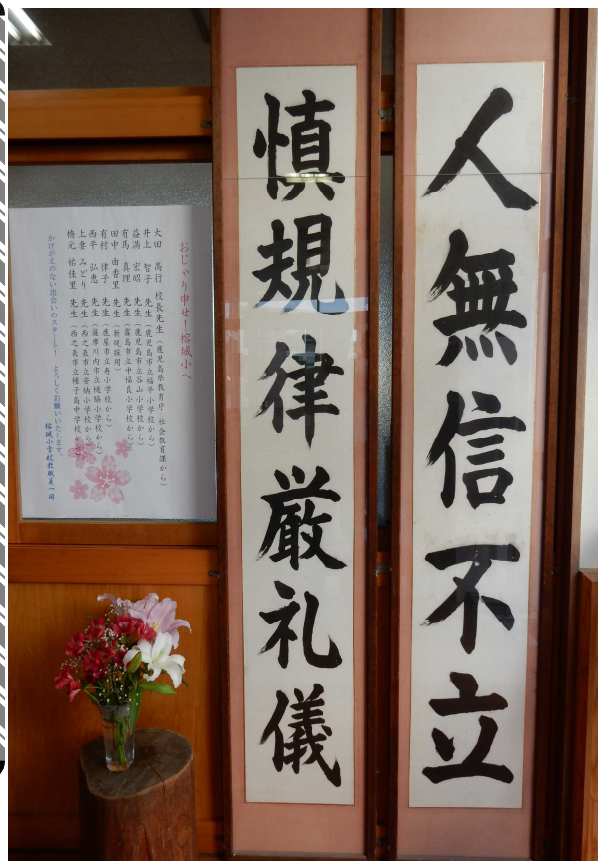 人無信不立
慎規律厳礼儀
おじゃり申せ！榕城小へ
大田 高行 校長先生（鹿児島県教育庁 社会教育課から）
井上 智子 先生（鹿児島市立福平小学校から）
益満 宏昭 先生（鹿児島市立谷山小学校から）
有馬 真理 先生（霧島市立中福良小学校から）
田中 由香里 先生（新規採用）
有村 律子 先生（鹿屋市立寿小学校から）
西平 弘恵 先生（薩摩川内市立樋脇小学校から）
上妻 みどり 先生（西之表市立安納小学校から）
橋元 祐佳里 先生（西之表市立種子島中学校から）
かけがえのない出会いのスタート！ よろしくお願いいたします。
榕城小学校教職員一同